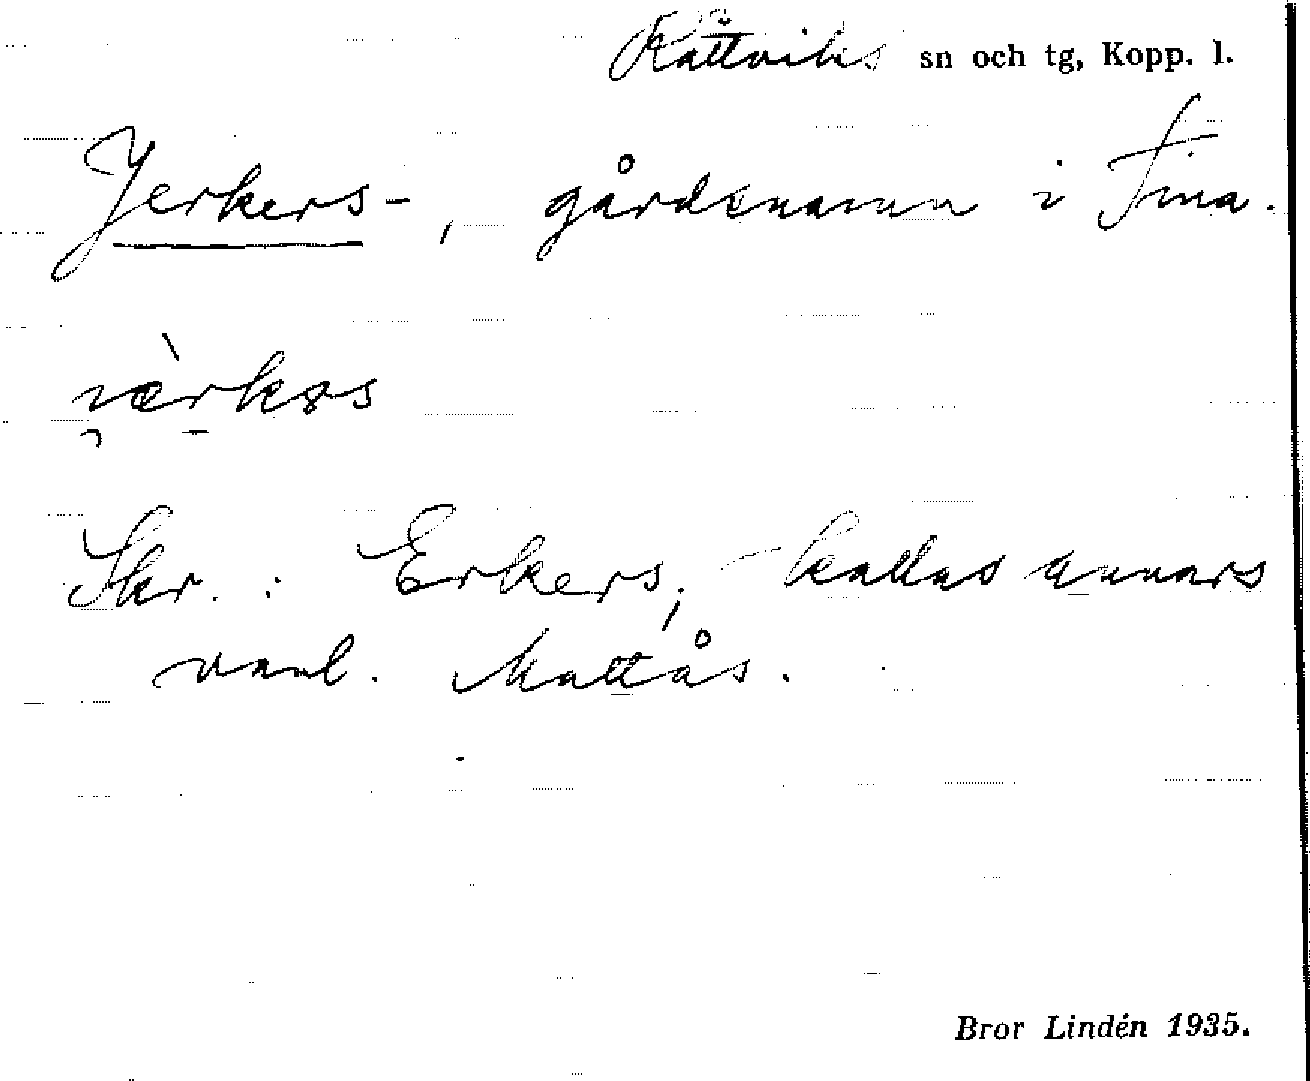 Rättviks sn och tg, Kopp. l.
Jerkers-, gårdsnamn i Sina.
Skr.: Erkers; – kallas annars
vanl. Mattås.
Bror Lindén 1935.